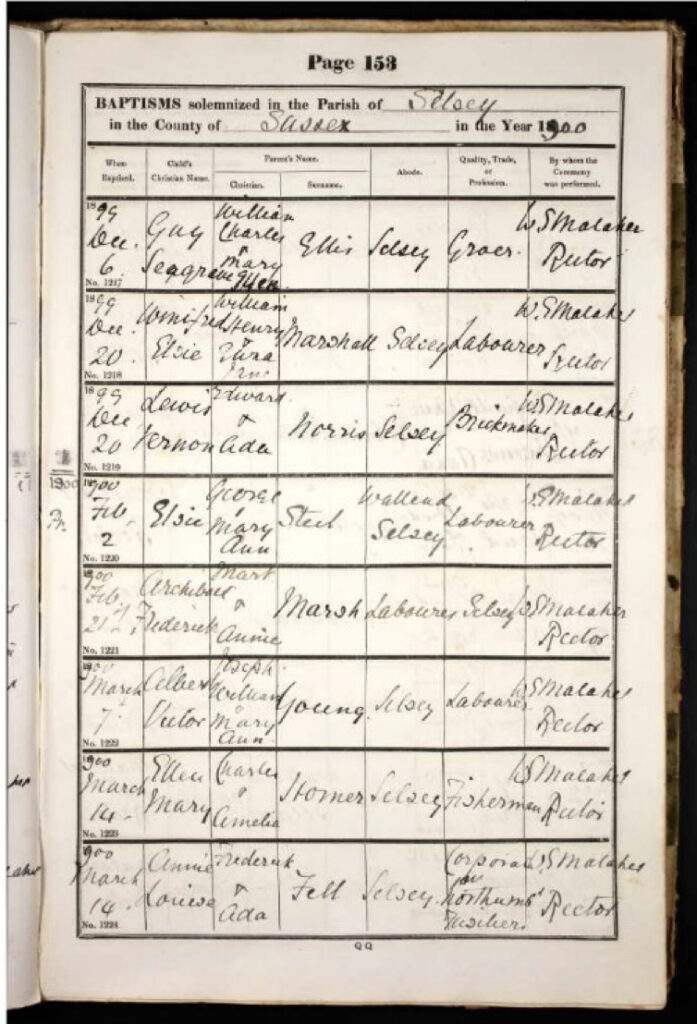 Page 153
BAPTISMS solemnized in the Parish of Selsey
in the County of Sussex in the Year 1900
When Baptized. Child's Christian Name. Parent's Name. Christian. Surname. Abode. Quality, Trade, or Profession. By whom the Ceremony was performed.
1899 Dec. 6 No. 1217 Guy Seagrave William Charles & Mary Ellen Ellis Selsey Grocer. W. S Malaher Rector
1899 Dec. 20 No. 1218 Winifred Elsie William Henry & Marshall Selsey Labourer W. S Malaher Rector
1899 Dec 20 No. 1219 Lewis Vernon Edward & Ada Norris Selsey Brickmaker W S Malaher Rector
1900 Feb. 2 No. 1220 Elsie George & Mary Ann Steel Selsey Labourer W S Malaher Rector
1900 Feb. 21 No. 1221 Archibald Frederick & Annie Marsh Labourer Selsey W S Malaher Rector
1900 March 7 No. 1222 Albert Victor Joseph William & Mary Ann Young Selsey Labourer W S Malaher Rector
1900 March 14 No. 1223 Ellen Mary Charles & Amelia Homer Selsey Fisherman W S Malaher Rector
1900 March 14 No. 1224 Annie Louise Frederick & Ada Fell Selsey Corporal Northumbd Fusiliers W. S Malaher Rector
1900
QQ